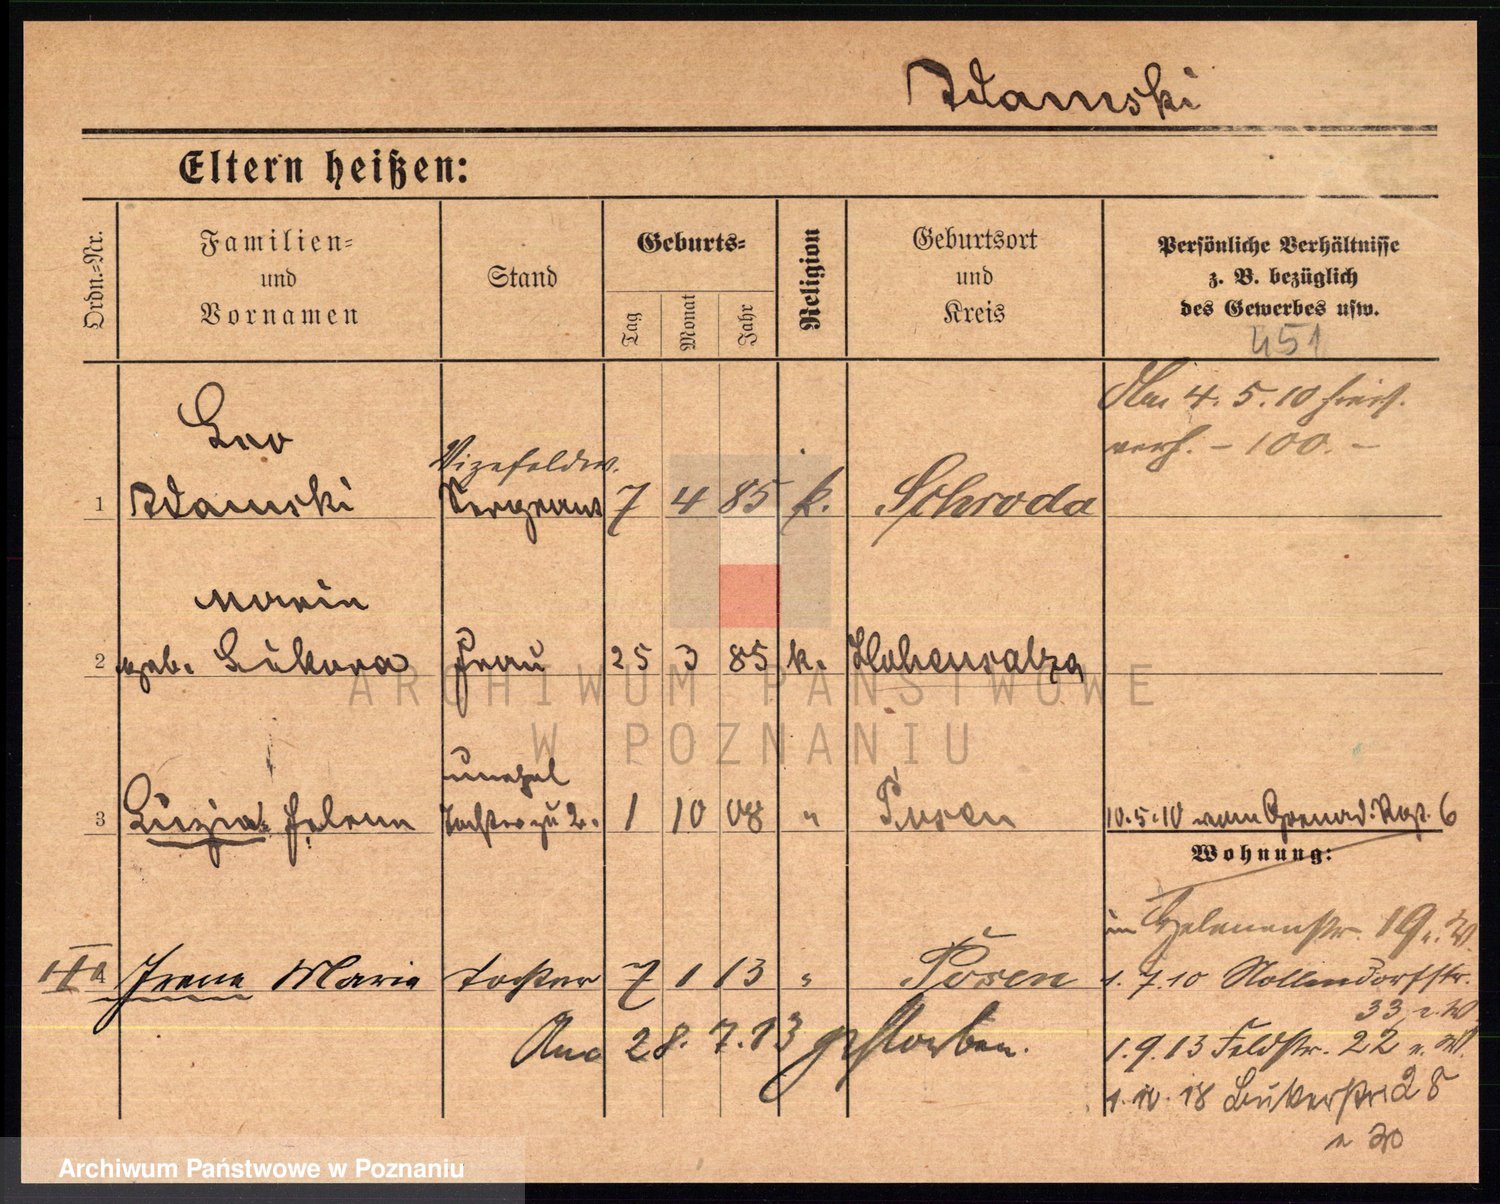 Adamski
Eltern heißen:
Ordn.=Nr.
Familien=
und
Vornamen
Stand
Geburts=
Tag
Monat
Jahr
Religion
Geburtsort
und
Kreis
Persönliche Verhältnisse
z. B. bezüglich
des Gewerbes usw.
451
Leo
Vizefeldw.
1 Adamski Sergeant 7 4 85 k. Schroda
4. 5. 10 hier
verh. – 100. –
Marie
2 geb. Sikora Frau 25 3 85 k. Hohensalza
unehel
3 Luzia Helene Tochter zu 2. 1 10 08 " Posen
10.5.10 vom Grenad. Regt. 6
Wohnung:
Helenenstr. 19 n. W.
4 Irene Maria Tochter 7 1 13 " Posen
1. 7. 10 Nollendorfstr.
33 n. W.
Am 28. 7. 13 gestorben.
1. 9. 13 Feldstr. 22 n. W.
1. 10. 18 28
ARCHIWUM PAŃSTWOWE
W POZNANIU
Archiwum Państwowe w Poznaniu